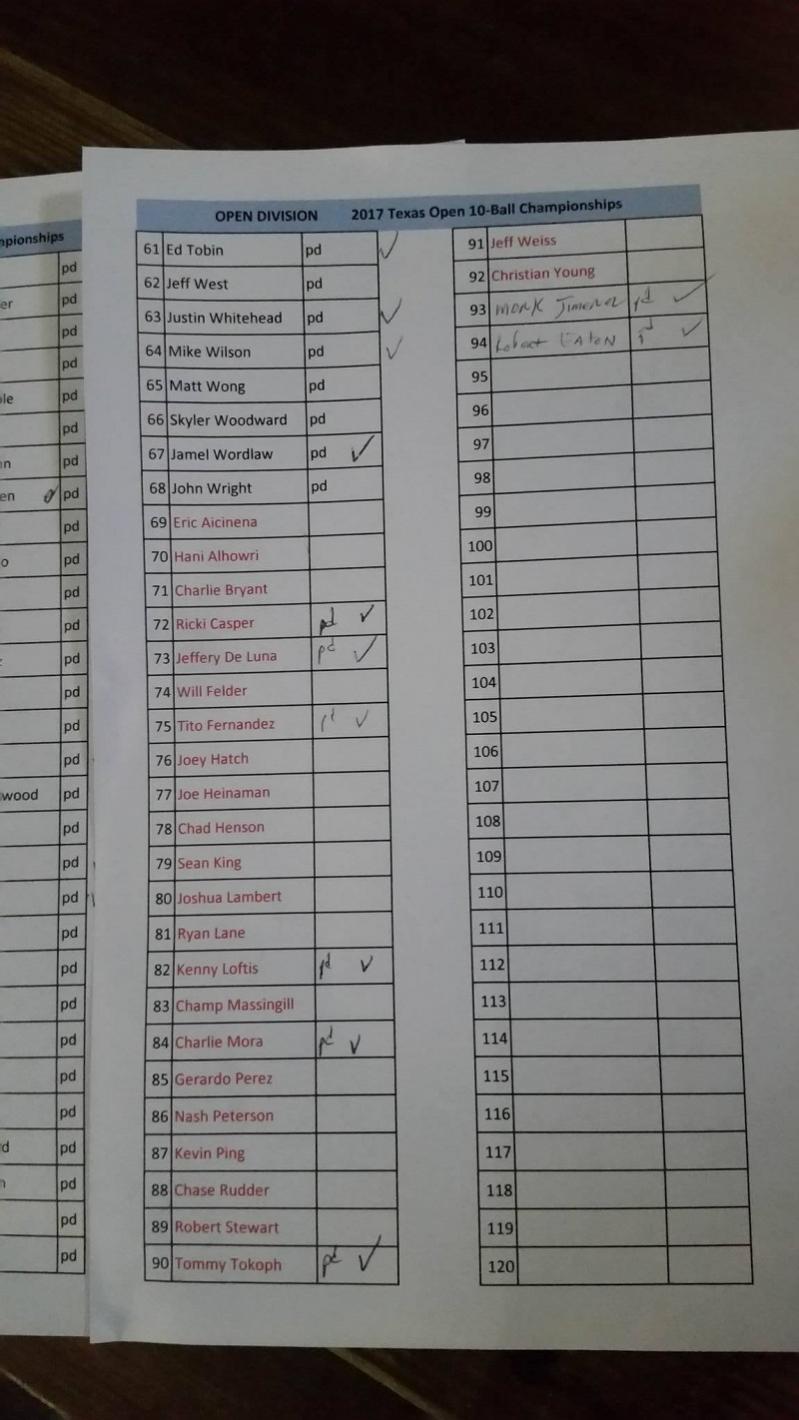 mpionships
pd
er pd
pd
pd
le pd
pd
n pd
en pd
pd
o pd
pd
pd
pd
pd
pd
pd
wood pd
pd
pd
pd
pd
pd
pd
pd
pd
pd
d pd
pd
pd
pd
OPEN DIVISION 2017 Texas Open 10-Ball Championships
61 Ed Tobin pd ✓
62 Jeff West pd
63 Justin Whitehead pd ✓
64 Mike Wilson pd ✓
65 Matt Wong pd
66 Skyler Woodward pd
67 Jamel Wordlaw pd ✓
68 John Wright pd
69 Eric Aicinena
70 Hani Alhowri
71 Charlie Bryant
72 Ricki Casper pd ✓
73 Jeffery De Luna pd ✓
74 Will Felder
75 Tito Fernandez pd ✓
76 Joey Hatch
77 Joe Heinaman
78 Chad Henson
79 Sean King
80 Joshua Lambert
81 Ryan Lane
82 Kenny Loftis pd ✓
83 Champ Massingill
84 Charlie Mora pd ✓
85 Gerardo Perez
86 Nash Peterson
87 Kevin Ping
88 Chase Rudder
89 Robert Stewart
90 Tommy Tokoph pd ✓
91 Jeff Weiss
92 Christian Young
93 MARK Jimenez pd ✓
94 Robert EATON pd ✓
95
96
97
98
99
100
101
102
103
104
105
106
107
108
109
110
111
112
113
114
115
116
117
118
119
120